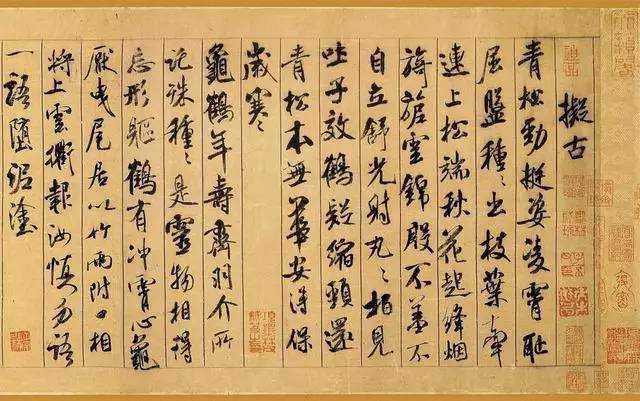 擬古
青松勁挺姿凌霄恥
屈盤種々出枝葉牽
連上松端秋花起絳烟
旖旎雲錦殷不羞不
自立舒光射丸々柏見
吐子效鶴疑縮頸還
青松本無華安得保
歲寒
龜鶴年壽齊羽介所
託殊種々是靈物相得
忘形軀鶴有冲霄心龜
厭曳尾居以竹兩附口相
將上雲衢報汝慎勿語
一語墮泥塗